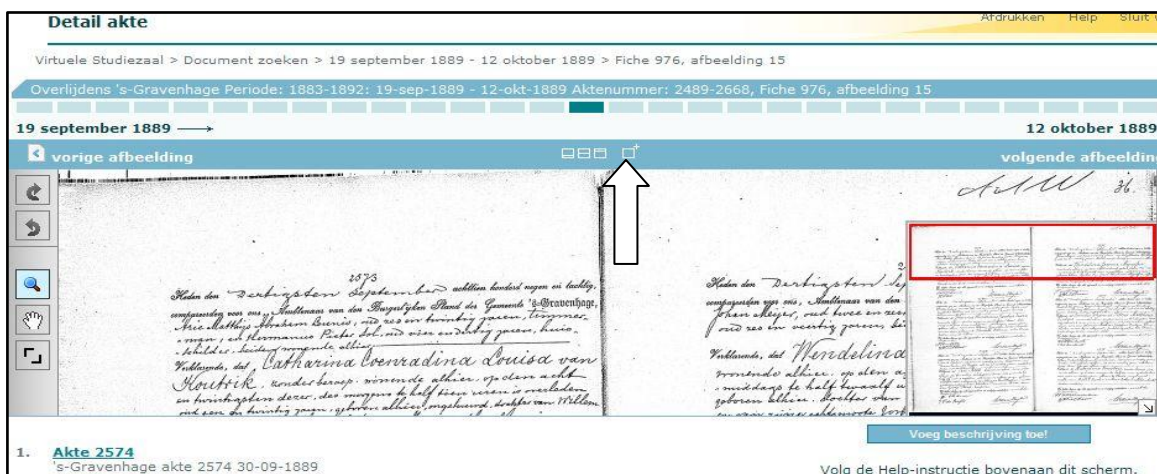 Detail akte
Afdrukken Help Sluit
Virtuele Studiezaal > Document zoeken > 19 september 1889 - 12 oktober 1889 > Fiche 976, afbeelding 15
Overlijdens 's-Gravenhage Periode: 1883-1892: 19-sep-1889 - 12-okt-1889 Aktenummer: 2489-2668, Fiche 976, afbeelding 15
19 september 1889 → 12 oktober 1889
vorige afbeelding volgende afbeeldin
36.
2573
Heden den Dertigsten September achttien honderd negen en tachtig,
compareerden voor ons, Ambtenaar van den Burgerlijken Stand der Gemeente 's-Gravenhage,
Arie Matthijs Abraham Bennis, oud zes en twintig jaren, timmer-
-man, en Hermanus Pieter Sol, oud vier en dertig jaren, huis-
-schilder, beiden wonende alhier,
Verklarende, dat Catharina Coenradina Louisa van
Houtrik, zonder beroep, wonende alhier, op den acht
en twintigsten dezer, des morgens te half tien uren is overleden
oud een en twintig jaren, geboren alhier, ongehuwd, dochter van Willem
Heden den Dertigsten Sep
compareerden voor ons, Ambtenaar van den
Johan Meijer, oud twee en
oud zes en veertig jaren,
Verklarende, dat Wendelina
wonende alhier, op den
middags te half twaalf
geboren alhier, dochter van
Voeg beschrijving toe!
1. Akte 2574
's-Gravenhage akte 2574 30-09-1889
Volg de Help-instructie bovenaan dit scherm.